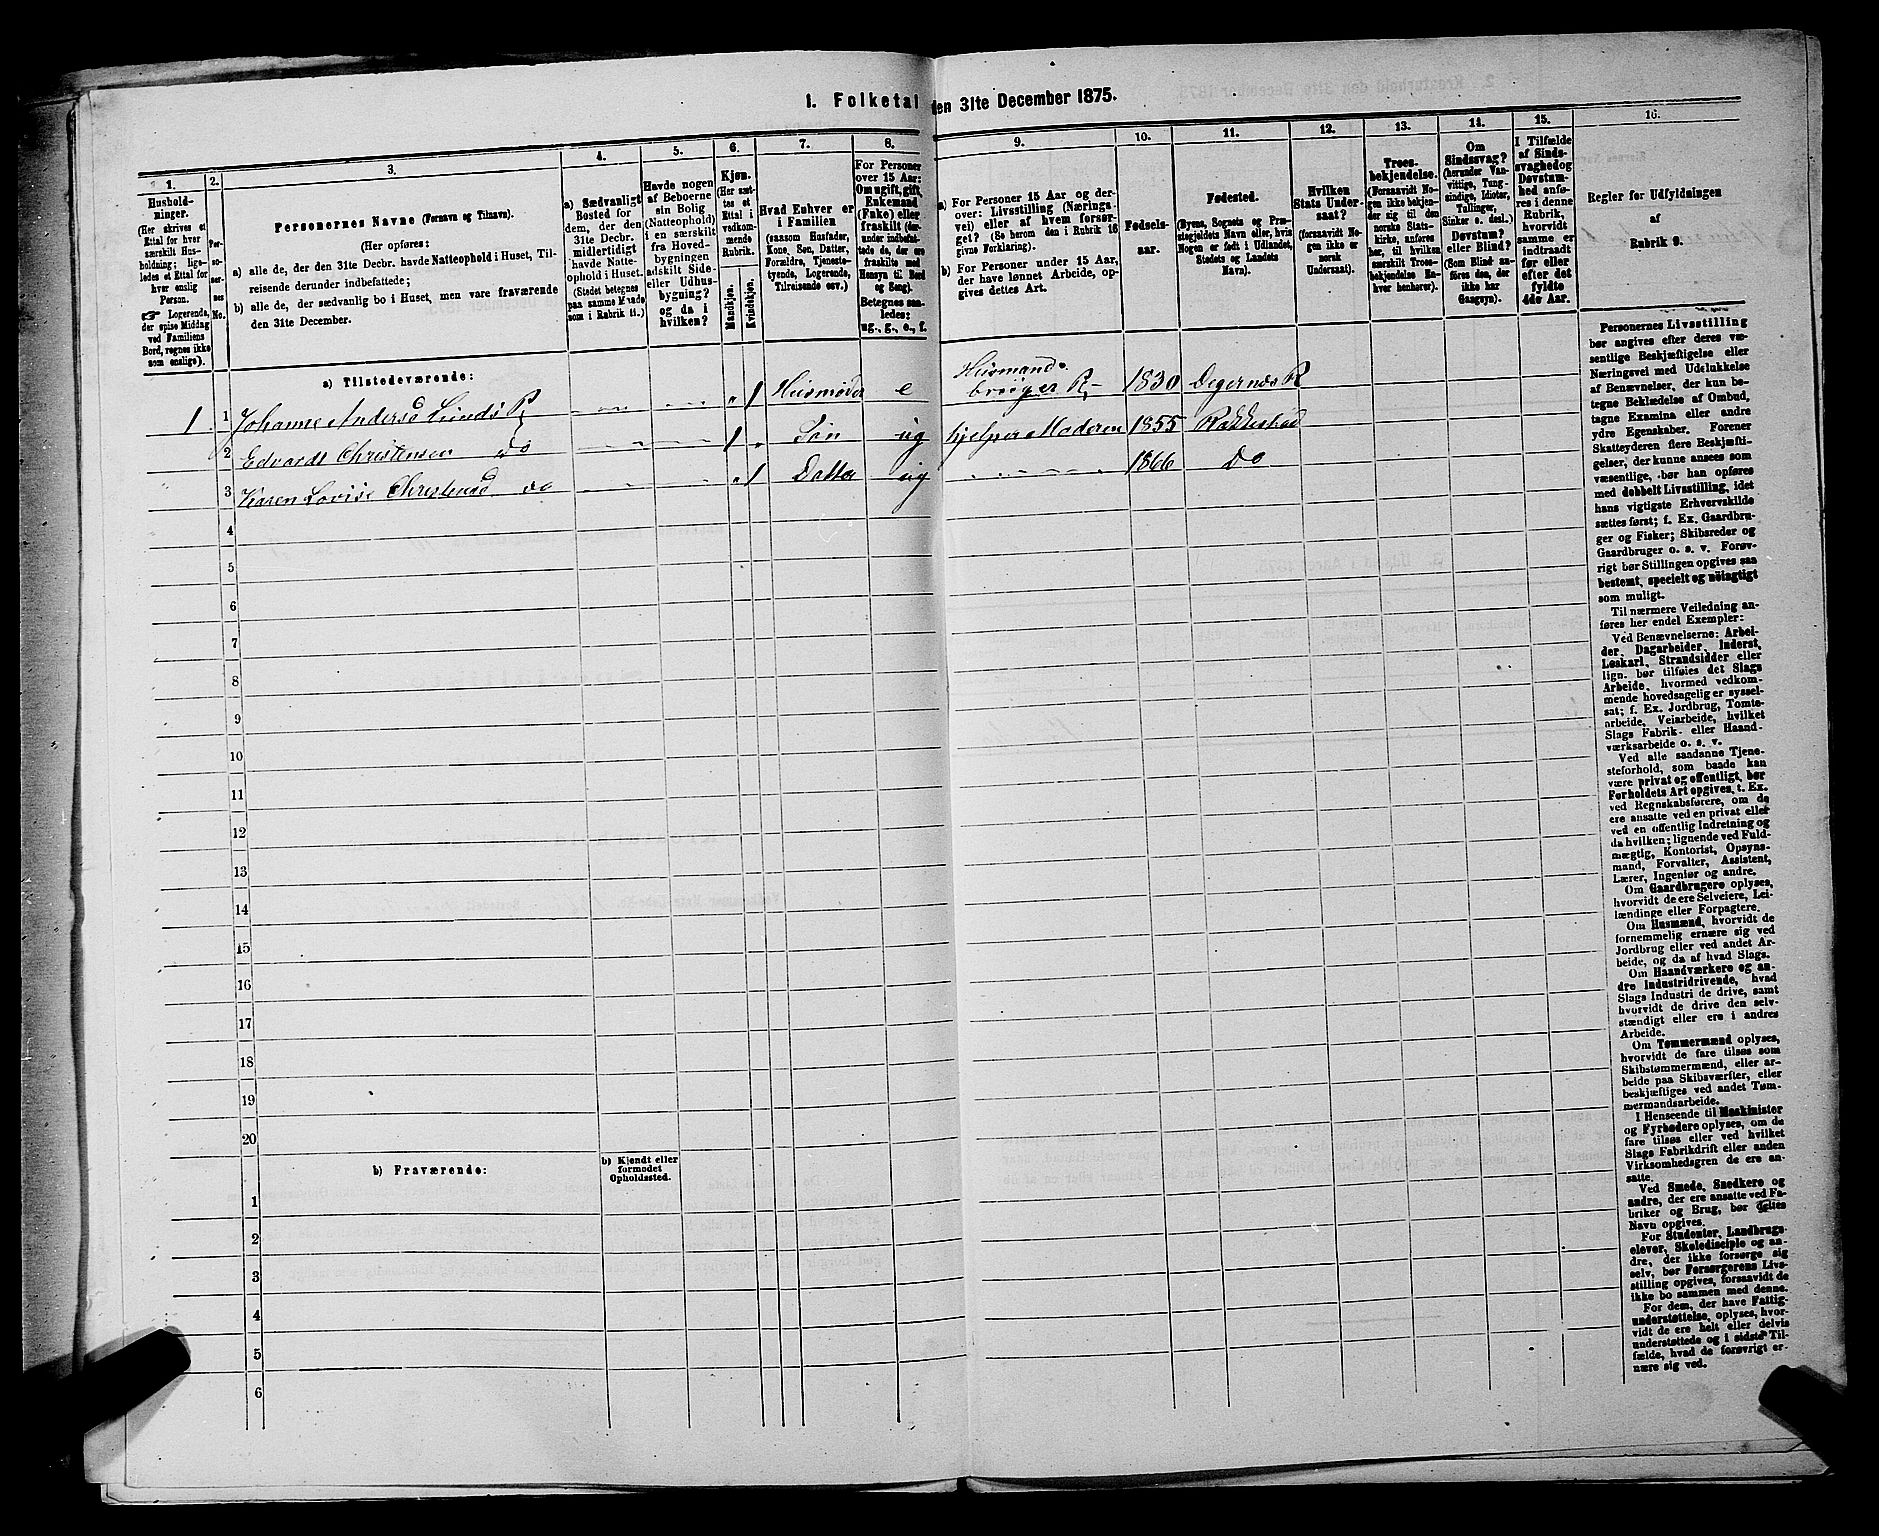 1. Folketal den 31te December 1875.
1.
Hushold-
ninger.
(Her skrives et
Ettal for hver
særskilt Hus-
holdning; lige-
ledes et Ettal for
hver enslig
Person.
☞ Logerende,
der spise Middag
ved Familiens
Bord, regnes ikke
som enslige).
2.
Per-
so-
ner-
nes
No.
3.
Personernes Navne (Fornavn og Tilnavn).
(Her opføres:
a) alle de, der den 31te Decbr. havde Natteophold i Huset, Til-
reisende derunder indbefattede;
b) alle de, der sædvanlig bo i Huset, men vare fraværende
den 31te December.
4.
a) Sædvanligt
Bosted for
dem, der den
31te Decbr.
midlertidigt
havde Natte-
ophold i Huset.
(Stedet betegnes
paa samme Maade
som i Rubrik 11.)
5.
Havde nogen
af Beboerne
sin Bolig
(Natteophold)
i en særskilt
fra Hoved-
bygningen
adskilt Side-
eller Udhus-
bygning?
og da i
hvilken?
6.
Kjøn.
(Her sæt-
tes et
Ettal i
vedkom-
mende
Rubrik.
Mandkjøn.
Kvindekjøn.
7.
Hvad Enhver er
i Familien
(saasom Husfader,
Kone, Søn, Datter,
Forældre, Tjeneste-
tyende, Logerende,
Tilreisende osv.)
8.
For Personer
over 15 Aar:
Om ugift, gift,
Enkemand
(Enke) eller
fraskilt (der-
under indbefat-
tede de, der ere
fraskilte med
Hensyn til Bord
og Seng).
Betegnes saa-
ledes:
ug., g., e., f.
9.
a) For Personer 15 Aar og der-
over: Livsstilling (Nærings-
vei) eller af hvem forsør-
get? (Se herom den i Rubrik 16
givne Forklaring).
b) For Personer under 15 Aar,
der have lønnet Arbeide, op-
gives dettes Art.
10.
Fødsels-
aar.
11.
Fødested.
(Byens, Sognets og Præ-
stegjeldets Navn eller, hvis
Nogen er født i Udlandet,
Stedets og Landets
Navn).
12.
Hvilken
Stats Under-
saat?
(forsaavidt No-
gen ikke er
norsk
Undersaat).
13.
Troes-
bekjendelse.
(Forsaavidt No-
gen ikke bekjen-
der sig til den
norske Stats-
kirke, anføres
her, til hvilken
særskilt Troes-
bekjendelse En-
hver henhører).
14.
Om
Sindssvag?
(herunder Van-
vittige, Tung-
sindige, Idioter,
Tullinger,
Sinker o. desl.)
Døvstum?
eller Blind?
(Som Blind an-
føres den, der
ikke har
Gangsyn).
15.
I Tilfælde
af Sinds-
svaghed og
Døvstum-
hed anfø-
res i denne
Rubrik,
hvorvidt
samme er
indtraadt
før eller
efter det
fyldte
4de Aar.
16.
Regler for Udfyldningen
af
Rubrik 9.
a) Tilstedeværende:
1 1 Johanne Andersd Lunds R " 1 Husmoder e Husmands- 1830 Degernæs R
2 Edvardt Christensen do 1 " Søn ug hjelper Moderen 1855 Rakkestad
3 Karen Lovise Christensd do " 1 Datter ug 1866 do
4
5
6
7
8
9
10
11
12
13
14
15
16
17
18
19
20
b) Fraværende:
b) Kjendt eller
formodet
Opholdssted.
1
2
3
4
5
6
Personernes Livsstilling
bør angives efter deres væ-
sentlige Beskjæftigelse eller
Næringsvei med Udelukkelse
af Benævnelser, der kun be-
tegne Beklædelse af Ombud,
tagne Examina eller andre
ydre Egenskaber. Forener
Skatteyderen flere Beskjæfti-
gelser, der kunne ansees som
væsentlige, bør han opføres
med dobbelt Livsstilling, idet
hans vigtigste Erhvervskilde
sættes først; f. Ex. Gaardbru-
ger og Fisker; Skibsreder og
Gaardbruger o. s. v. Forøv-
rigt bør Stillingen opgives saa
bestemt, specielt og nöiagtigt
som muligt.
Til nærmere Veiledning an-
føres her endel Exempler:
Ved Benævnelserne: Arbei-
der, Dagarbeider, Inderst,
Løskarl, Strandsidder eller
lign. bør tilføies det Slags
Arbeide, hvormed vedkom-
mende hovedsagelig er syssel-
sat; f. Ex. Jordbrug, Tomte-
arbeide, Veiarbeide, hvilket
Slags Fabrik- eller Haand-
værksarbeide o. s. v.
Ved alle saadanne Tjene-
steforhold, som baade kan
være privat og offentligt, bør
Forholdets Art opgives, t. Ex.
ved Regnskabsførere, om de
ere ansatte ved en privat eller
ved en offentlig Indretning og
da hvilken; lignende ved Fuld-
mægtig, Kontorist, Opsyns-
mand, Forvalter, Assistent,
Lærer, Ingeniør og andre.
Om Gaardbrugere oplyses,
hvorvidt de ere Selveiere, Lei-
lændinge eller Forpagtere.
Om Husmænd, hvorvidt de
fornemmelig ernære sig ved
Jordbrug eller ved andet Ar-
beide, og da af hvad Slags.
Om Haandværkere og an-
dre Industridrivende, hvad
Slags Industri de drive, samt
hvorvidt de drive den selv-
stændigt eller ere i andres
Arbeide.
Om Tømmermænd oplyses,
hvorvidt de fare tilsøs som
Skibstømmermænd, eller ar-
beide paa Skibsværfter, eller
beskjæftiges ved andet Tøm-
mermandsarbeide.
I Henseende til Maskinister
og Fyrbødere oplyses, om de
fare tilsøs eller ved hvilket
Slags Fabrikdrift eller anden
Virksomhedsgren de ere an-
satte.
Ved Smede, Snedkere og
andre, der ere ansatte ved Fa-
briker og Brug, bør dettes
Navn opgives.
For Studenter, Landbrugs-
elever, Skoledisciple og an-
dre, der ikke forsørge sig
selv, bør Forsørgerens Livs-
stilling opgives, forsaavidt de
ikke bo sammen med denne.
For dem, der have Fattig-
understøttelse, oplyses, hvor-
vidt de ere helt eller delvis
understøttede og i sidste Til-
fælde, hvad de forøvrigt er-
nære sig ved.